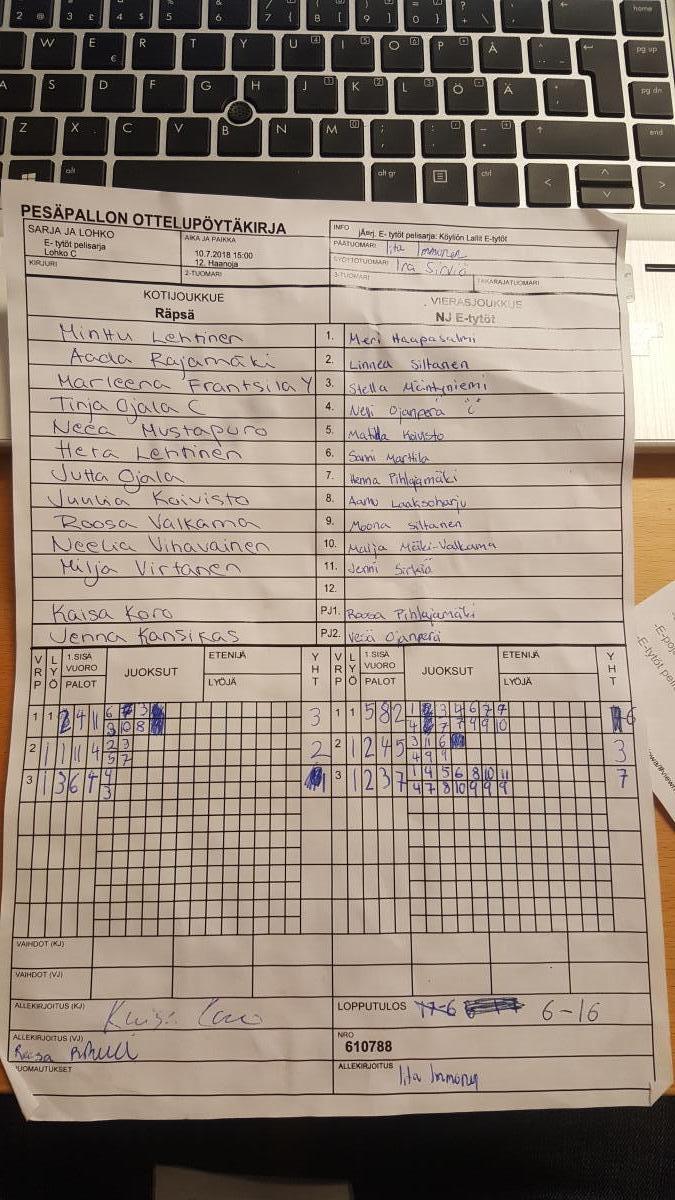 2 @ 3 £ 4 $ 5 6 7 { 8 [ 9 ] 0 } home
W E € R T Y U I O P Å pg up
A S D F G H J K L Ö Ä pg dn
Z X C V B N M end
alt alt gr ctrl < >
PESÄPALLON OTTELUPÖYTÄKIRJA
SARJA JA LOHKO
E- tytöt pelisarja
Lohko C
AIKA JA PAIKKA
10.7.2018 15:00
12. Haanoja
KIRJURI
2-TUOMARI
INFO
jÄerj. E- tytöt pelisarja: Köyliön Lallit E-tytöt
PÄÄTUOMARI Iita Immonen
SYÖTTÖTUOMARI Ira Sirviö
3-TUOMARI
TAKARAJATUOMARI
KOTIJOUKKUE
Räpsä
VIERASJOUKKUE
NJ E-tytöt
Minttu Lehtinen 1. Meri Haapasalmi
Aada Rajamäki 2. Linnea Siltanen
Marleena Frantsila Y 3. Stella Mäntyniemi
Tinja Ojala C 4. Neri Ojanperä C
Neea Mustapuro 5. Matilda Koivisto
Heta Lehtinen 6. Sanni Marttila
Jutta Ojala 7. Henna Pihlajamäki
Juulia Koivisto 8. Aamu Laaksoharju
Roosa Valkama 9. Moona Siltanen
Neelia Vihavainen 10. Maija Mäki-Valkama
Milja Virtanen 11. Jenni Sirkiä
12.
Kaisa Koro PJ1. Roosa Pihlajamäki
Jenna Kansikas PJ2. Vesa Ojanperä
VRP LYÖ 1.SISÄ VUORO PALOT JUOKSUT ETENIJÄ LYÖJÄ YHT VRP LYÖ 1.SISÄ VUORO PALOT JUOKSUT ETENIJÄ LYÖJÄ YHT
1 1 2 4 11 6 7 3 3 1 1 5 8 2 1 2 3 4 6 7 7 6
3 10 8 4 7 7 9 9 10
2 1 1 11 4 2 3 2 2 1 2 4 5 3 11 6 3
5 7 4 9 9
3 1 3 6 4 4 1 3 1 2 3 7 1 4 5 6 8 10 11 7
3 4 7 8 10 9 9 9
VAIHDOT (KJ)
VAIHDOT (VJ)
ALLEKIRJOITUS (KJ) Kaisa Koro
LOPPUTULOS 17-6 6-16
ALLEKIRJOITUS (VJ)
Roosa
NRO
610788
HUOMAUTUKSET
ALLEKIRJOITUS Iita Immonen